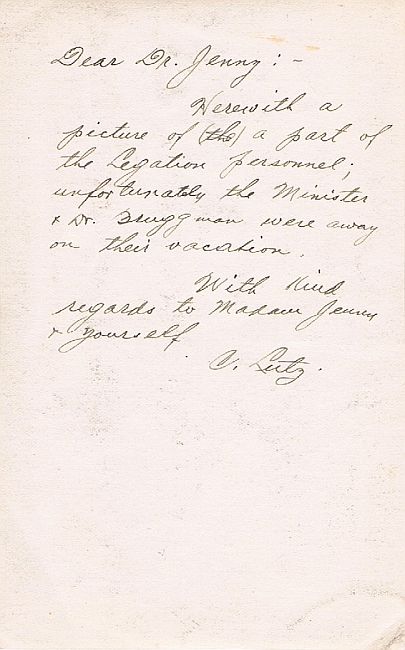 Dear Dr. Jenny : -
Herewith a
picture of (the) a part of
the Legation personnel;
unfortunately the Minister
& Dr. Bruggman were away
on their vacation.
With kind
regards to Madam Jenny
& yourself
C. Lutz.